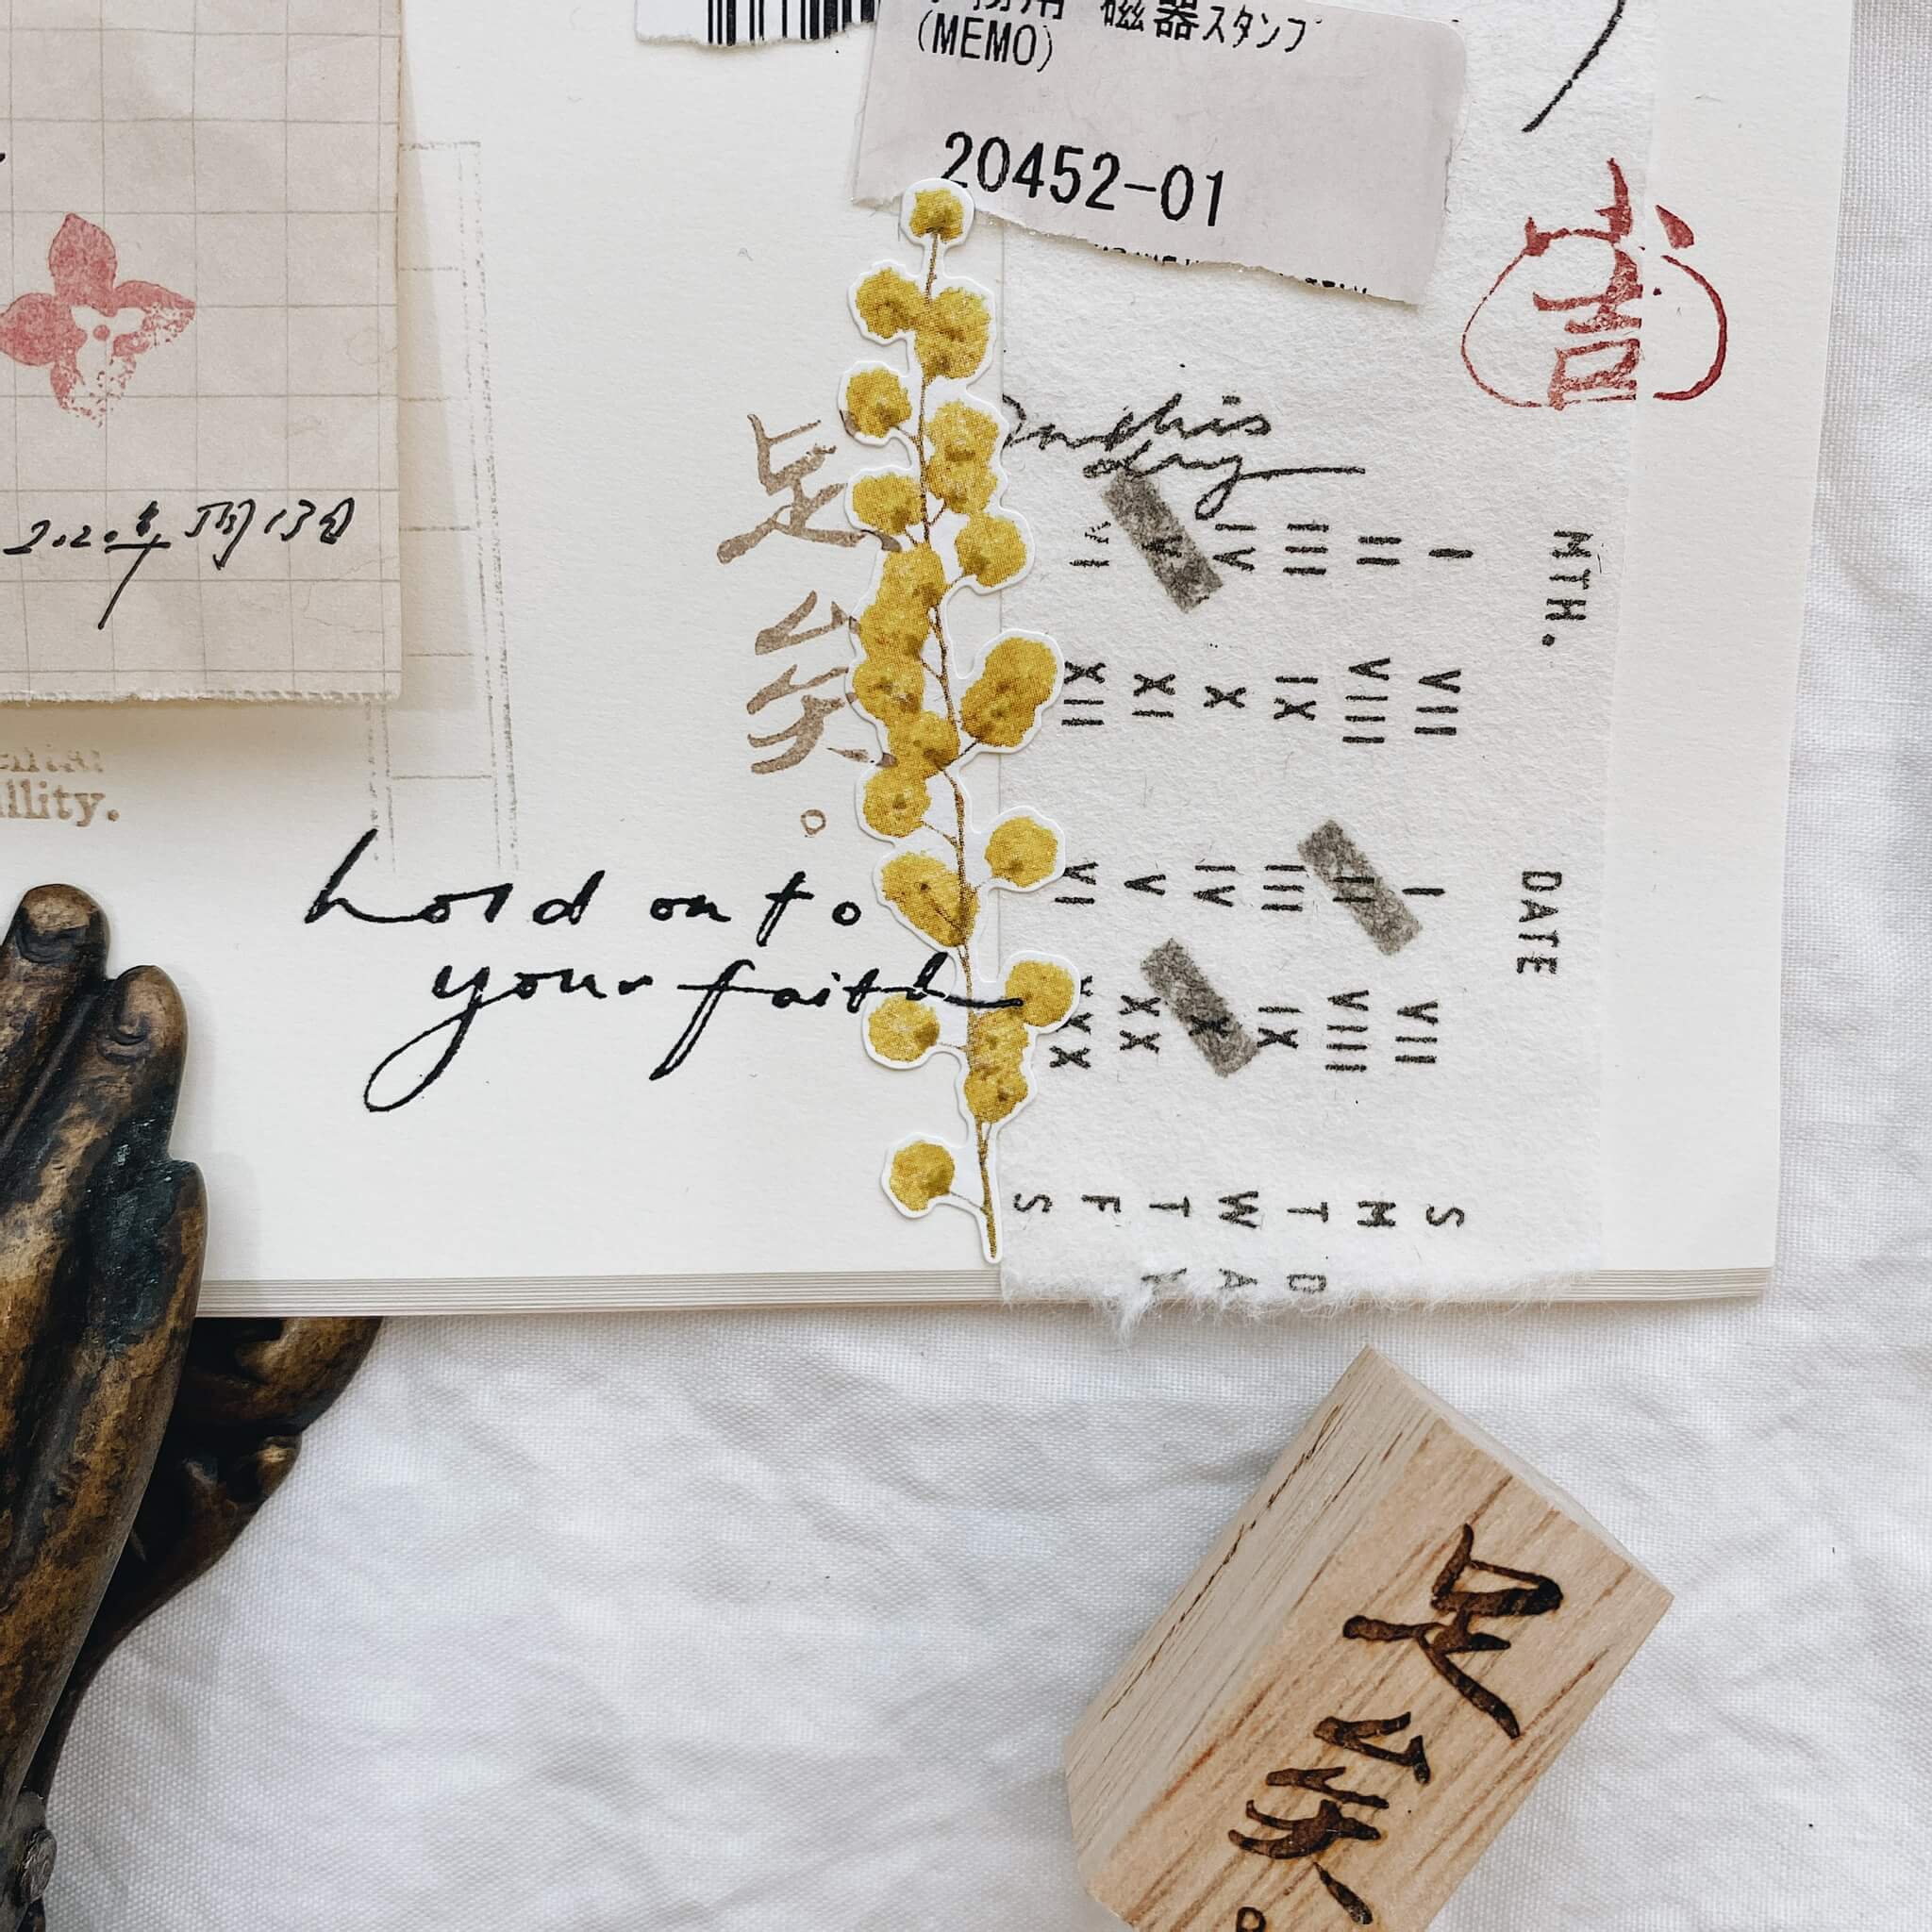 磁器スタンプ
(MEMO)
20452-01
吉
2020年5月13日
On this
day
足矣
。
llity.
hold onto
your faith
MTH.
I II III IV V VI
VII VIII IX X XI XII
DATE
I II III IV V VI
VII VIII IX X XX XXX
S M T W T F S
D A Y
足矣
。